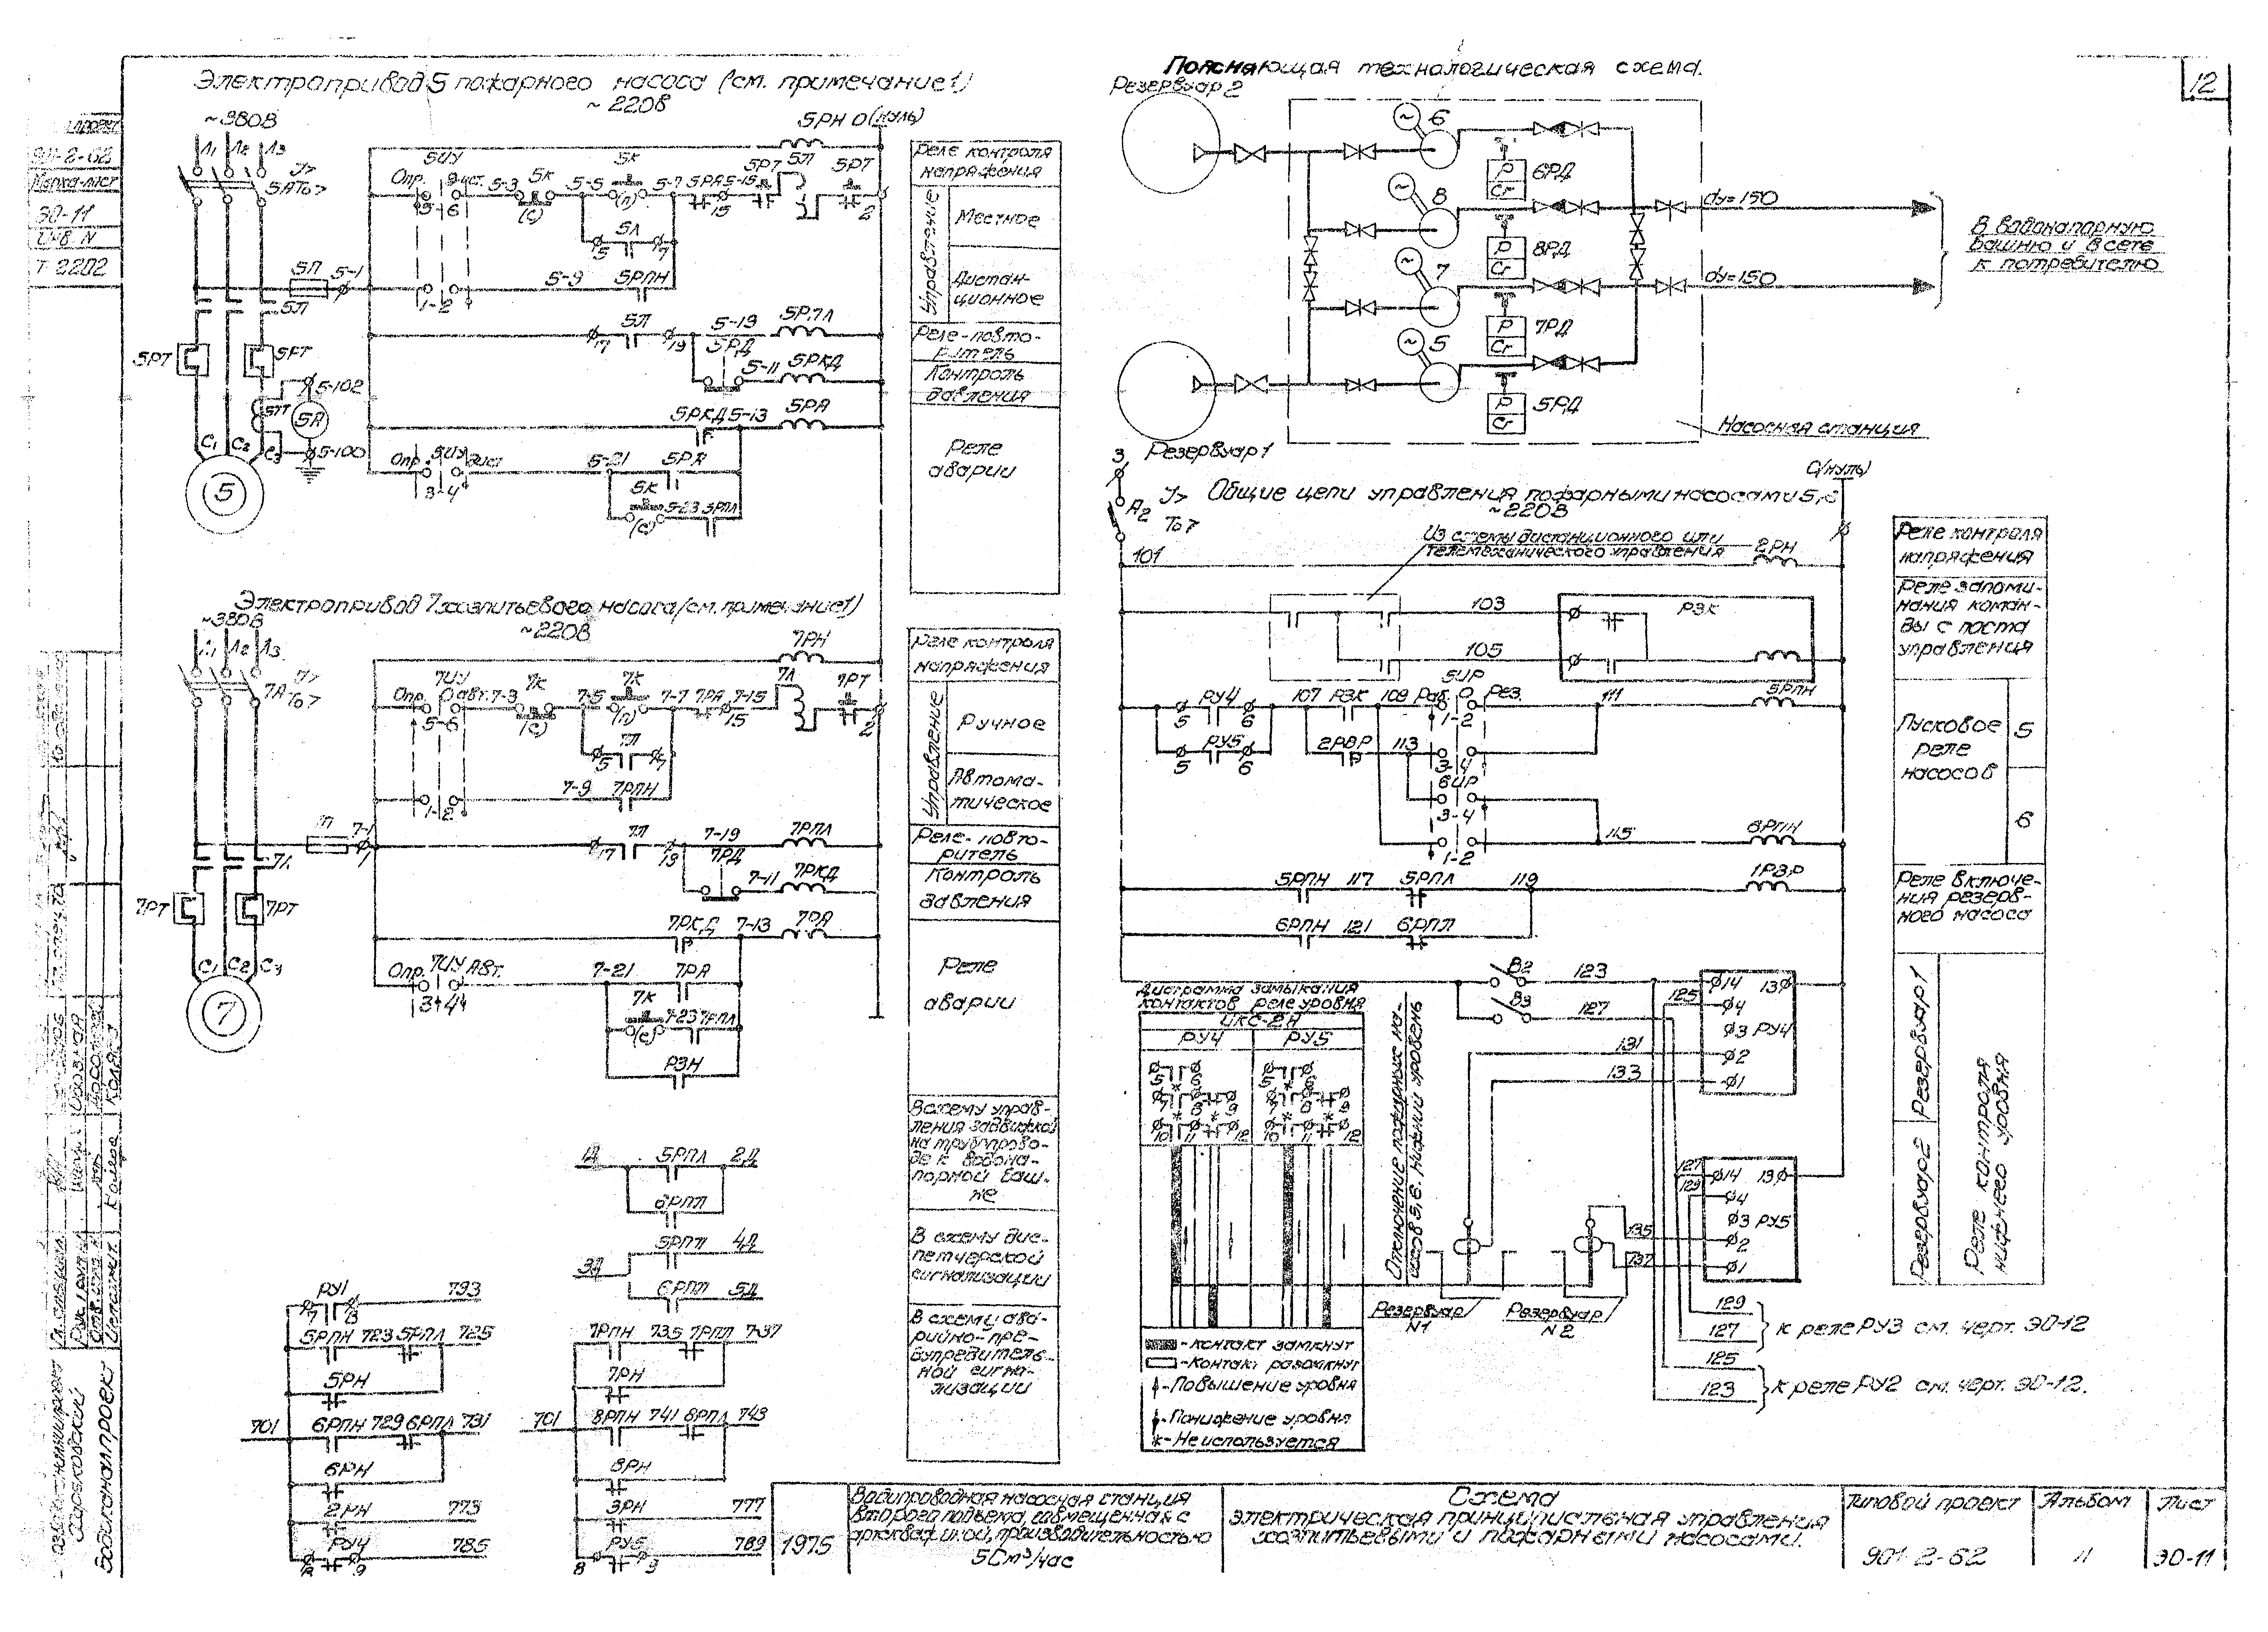 Электропривод 5 пожарного насоса (см. примечание 1)
~ 220В
~380В
Л1 Л2 Л3
5А То>
5РН 0 (нуль)
5ИУ
Опр. Дист.
5-3
5К
5-5
5К
5-7
5РА 5-15
5РТ
5Л
5РТ
5-6
(с)
(п)
15
2
5Л
5
7
5П
5-1
5-9
5РПН
1-2
5Л
17
19
5-19
5РПЛ
5РД
5-11
5РКД
5РТ
5РТ
5-102
5А
5-100
С1 С2 С3
5
5РКД 5-13
5РА
Опр. 5ИУ Дист
3-4
5-21
5РА
5К
(с)
5-23 5РПЛ
Реле контроля
напряжения
Управление
Местное
Дистан-
ционное
Реле-повто-
ритель
Контроль
давления
Реле
аварии
Электропривод 7 хозпитьевого насоса (см. примечание 1)
~220В
~380В
Л1 Л2 Л3
7А То>
7РН
7ИУ
Опр. О авт. 7-3
7К
7-5
7К
7-7
7РА
7-15
7Л
7РТ
5-6
(с)
(п)
15
2
7Л
5
7
7-9
7РПН
1-2
П
7-1
7Л
17
19
7-19
7РПЛ
7РД
7-11
7РКД
7Л
7РТ
7РТ
С1 С2 С3
7
7РКД
7-13
7РА
Опр. 7ИУ Авт.
3-4
7-21
7РА
7К
(с)
7-23 7РПЛ
РЗН
Реле контроля
напряжения
Управление
Ручное
Автома-
тическое
Реле-повто-
ритель
Контроль
давления
Реле
аварии
В схему управ-
ления задвижкой
на трубопрово-
де к водона-
порной баш-
не
В схему дис-
петчерской
сигнализации
В схему ава-
рийно-пре-
дупредитель-
ной сигна-
лизации
1Д
5РПЛ
2Д
6РПЛ
3Д
5РПЛ
4Д
6РПЛ
5Д
РУ1
793
7
8
5РПН 723 5РПЛ 725
5РН
701
6РПН 729 6РПЛ 731
6РН
2РН
773
РУ4
785
8
9
7РПН 735 7РПЛ 737
7РН
701
8РПН 741 8РПЛ 743
8РН
3РН
777
РУ5
789
8
9
Поясняющая технологическая схема.
Резервуар 2
6
8
7
5
6РД
8РД
7РД
5РД
Р
Сг
dу=150
dу=150
В водонапорную
башню и в сеть
к потребителю
Насосная станция
Резервуар 1
Общие цепи управления пожарными насосами 5, 6
~220В
0(нуль)
3
А2
То>
101
Из схемы дистанционного или
телемеханического управления
2РН
103
РЗК
105
5ИР
РУ4
107
РЗК
109
Раб. О Рез.
111
5РПН
5
6
1-2
РУ5
2РВР
113
5
6
3-4
6ИР
3-4
1-2
115
6РПН
5РПН 117 5РПЛ
119
1РВР
6РПН 121 6РПЛ
В2
123
В3
127
125
131
133
14
13
4
3 РУ4
2
1
127
129
14
13
4
3 РУ5
2
1
135
137
Резервуар
N1
Резервуар
N2
Отключение пожарных на-
сосов 5, 6. Нижний уровень
Диаграмма замыкания
контактов реле уровня
ИКС-2Н
РУ4
РУ5
5 6
7 8 9
10 11 12
5 6
7 8 9
10 11 12
- контакт замкнут
- контакт разомкнут
- Повышение уровня
- Понижение уровня
* - Не используется
129
127
к реле РУ3 см. черт. ЭО-12
125
123
к реле РУ2 см. черт. ЭО-12.
Реле контроля
напряжения
Реле запоми-
нания коман-
ды с поста
управления
Пусковое
реле
насосов
5
6
Реле включе-
ния резерв-
ного насоса
Резервуар 1
Резервуар 2
Реле контроля
нижнего уровня
12
901-2-62
Марка-лист
ЭО-11
Инв. N
Т-2202
Харьковский
Водоканалпроект
1975
Водопроводная насосная станция
второго подъема, совмещенная с
производительностью
50м³/час
Схема
электрическая принципиальная управления
хозпитьевыми и пожарными насосами.
Типовой проект
901-2-62
Альбом
II
Лист
ЭО-11